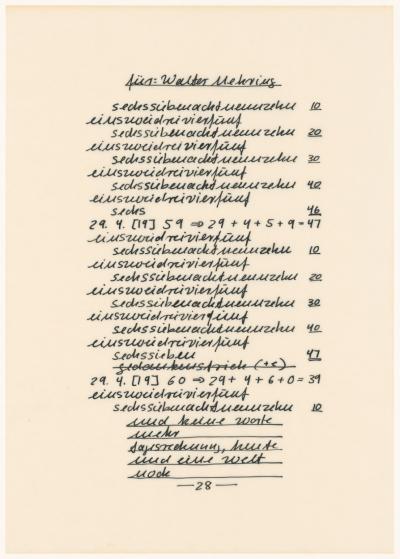 für: Walter Mehring
sechssiebenachtneunzehn 10
einszweidreivierfünf
sechssiebenachtneunzehn 20
einszweidreivierfünf
sechssiebenachtneunzehn 30
einszweidreivierfünf
sechssiebenachtneunzehn 40
einszweidreivierfünf
sechs 46
29. 4. [19] 59 ⇒ 29 + 4 + 5 + 9 = 47
einszweidreivierfünf
sechssiebenachtneunzehn 10
einszweidreivierfünf
sechssiebenachtneunzehn 20
einszweidreivierfünf
sechssiebenachtneunzehn 30
einszweidreivierfünf
sechssiebenachtneunzehn 40
einszweidreivierfünf
sechssieben 47
gedankenstrich
29. 4. [19] 60 ⇒ 29 + 4 + 6 + 0 = 39
einszweidreivierfünf
sechssiebenachtneunzehn 10
und keine worte
mehr
tagesrechnung, heute
und eine welt
noch
— 28 —